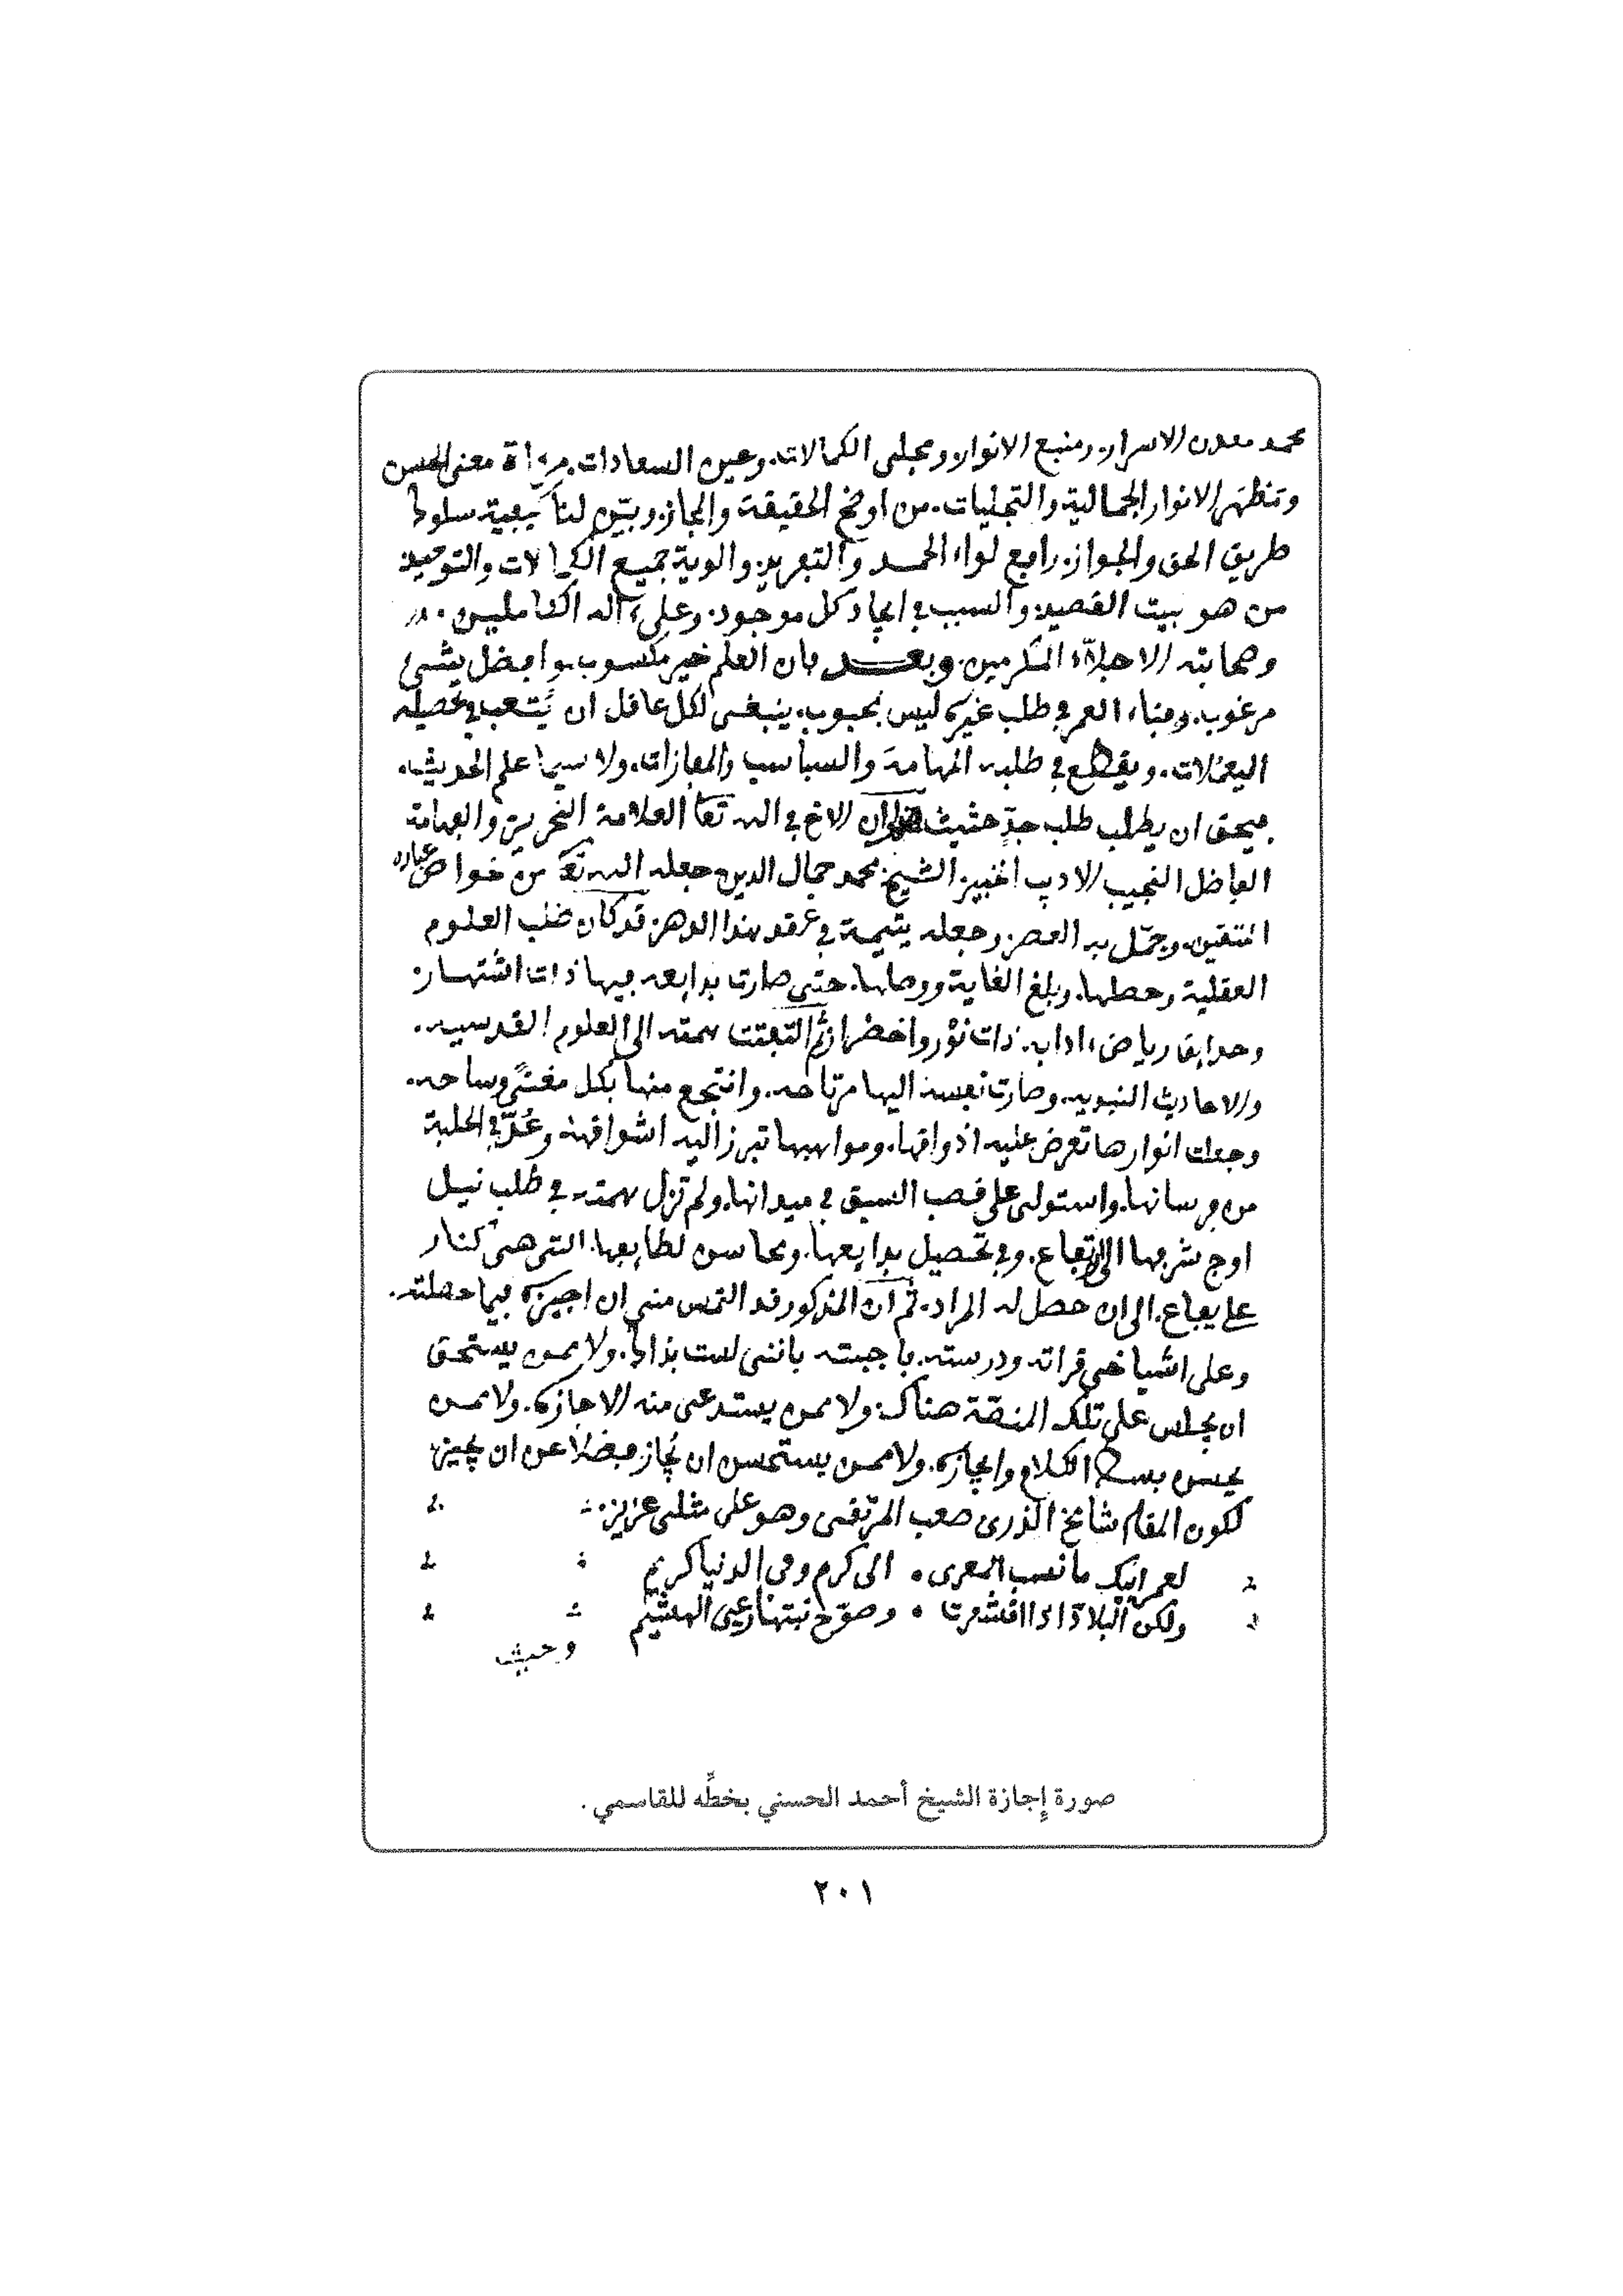 محمد معدن الاسرار. ومنبع الانوار. ومجلى الكمالات. وعين السعادات. مرءاة معنى الحسن
ومظهر الانوار الجمالية والتجليات. من اوضح الحقيقة والمجاز. وبيّن لنا كيفية سلوك
طريق الحق والجواز. رافع لواء الحمد والتفريد. والوية جميع الكمالات والتوحيد
من هو بيت القصيد. والسبب في ايجاد كل موجود. وعلى ءاله الكاملين.
وصحابته الاجلاّء المكرمين. وبعد فان العلم خير مكسوب. وافضل شىء
مرغوب. وفناء العمر في طلب غيره ليس بمحبوب. ينبغى لكل عاقل ان يُتعب في تحصيله
اليعملات. ويقطع في طلبه المهامه والسباسب والمفازات. ولا سيما علم الحديث.
فيحق ان يطلب طلب جدٍّ حثيث وان الاخ في الله تعا العلامة النحرير. والفهامة
الفاضل النجيب الاديب الخبير. الشيخ محمد جمال الدين جعله الله تعا من خواص عباده
المتقين. وجمّل به العصر. وجعله يتيمة في عقد هذا الدهر. قد كان طلب العلوم
العقلية وحصلها. وبلغ الغاية ووصلها. حتى صارت بدايعه فيها ذات اشتهار.
وحدايق رياض ءادابه. ذات نَوْر واخضرار. ثم التفتت همته الى العلوم القدسيه.
والاحاديث النبويه. وصارت نفسه اليها مرتاحه. وانتجع منها بكل مغنىً وساحه.
وجعلت انوارها تعرض عليه اذواقها. ومواهبها تبرز اليه اشواقها. وعُدّ في الحلبة
من فرسانها. واستولى على قصب السبق في ميدانها. ولم تزل همته في طلب نيل
اوج شرفها الى ارتفاع. وفي تحصيل بدايعها. ومحاسن لطايفها. التى هى كنار
على يفاع. الى ان حصل له المراد. ثم ان المذكور قد التمس منى ان اجيزه فيما حصلته.
وعلى اشياخى قراته ودرسته. فاجبته باننى لست بذاك. ولا ممن يستحق
ان يجلس على تلك المنصة هناك. ولا ممن يستدعى منه الاجازه. ولا ممن
يحسن بسط الكلام وايجازه. ولا ممن يستحسن ان يُجاز. فضلا عن ان يجيز.
لكون المقام شامخ الذرى صعب المرتقى وهو على مثلى عزيز.
لعمر ابيك ما نسب المعرى • الى كرم وفى الدنيا كريم
ولكن البلاد اذا اقشعرت • وصوّح نبتها رعى الهشيم
وحيث
صورة إجازة الشيخ أحمد الحسني بخطِّه للقاسمي.
٢٠١